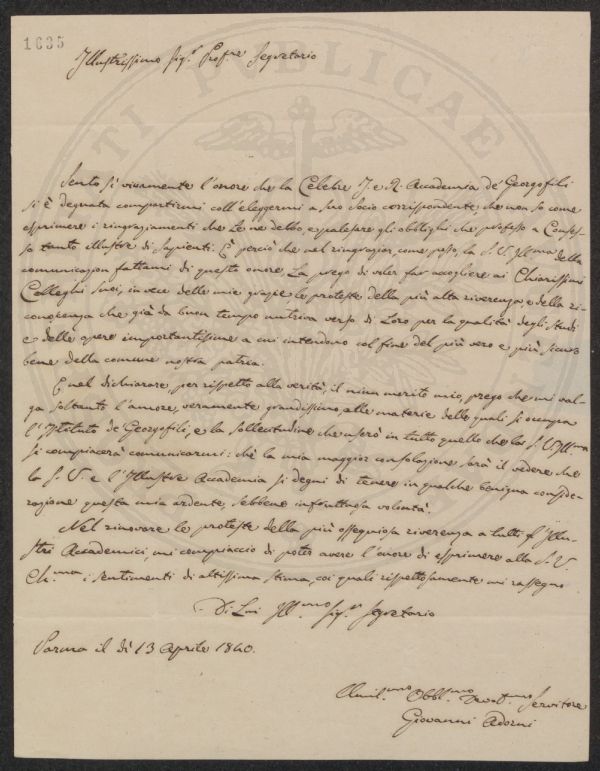 1635
Illustrissimo Sig.r Prof.re Segretario
Sento sì vivamente l'onore che la Celebre I. e R. Accademia de' Georgofili
si è degnata compartirmi coll'eleggermi a suo Socio corrispondente che non so come
esprimere i ringraziamenti che Le ne debbo, e palesare gli obblighi che professo a Consess-
so tanto illustre di Sapienti. E perciò che nel ringraziar, come posso, la S. V. Ill.ma della
comunicazion fattami di questo onore, La prego di voler far accogliere ai Chiarissimi
Colleghi Suoi, in vece delle mie grazie le proteste della più alta riverenza e della ri-
conoscenza che già da buon tempo nutriva verso di Loro per la qualità degli Studi
e delle opere importantissime a cui intendono col fine del più vero e più sicuro
bene della comune nostra patria.
E nel dichiarare, per rispetto alla verità, il niun merito mio, prego che mi val-
ga soltanto l'amore, veramente grandissimo, alle materie delle quali si occupa
l'Istituto de' Georgofili, e la sollecitudine che userò in tutto quello che la S. V. Ill.ma
si compiacerà comunicarmi: chè la mia maggior consolazione sarà il vedere che
la S. V. e l'Illustre Accademia si degni di tenere in qualche benigna conside-
razione questa mia ardente, sebbene infruttuosa volontà.
Nel rinovare le proteste della più ossequiosa riverenza a tutti gl'Illu-
stri Accademici, mi compiaccio di poter avere l'onore di esprimere alla S. V.
Ch.ma i sentimenti di altissima stima, coi quali rispettosamente mi rassegno
Di Lui Ill.mo Sig.r Segretario
Parma il dì 13 Aprile 1840.
Umil.mo Obbl.mo Devot.mo Servitore
Giovanni Adorni
TI PUBLICAE